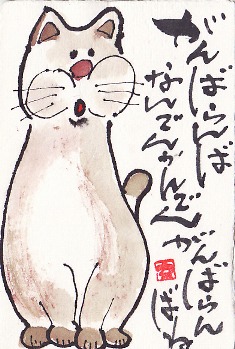 がんばらんば
なんでんかんでん
がんばらん
ばね